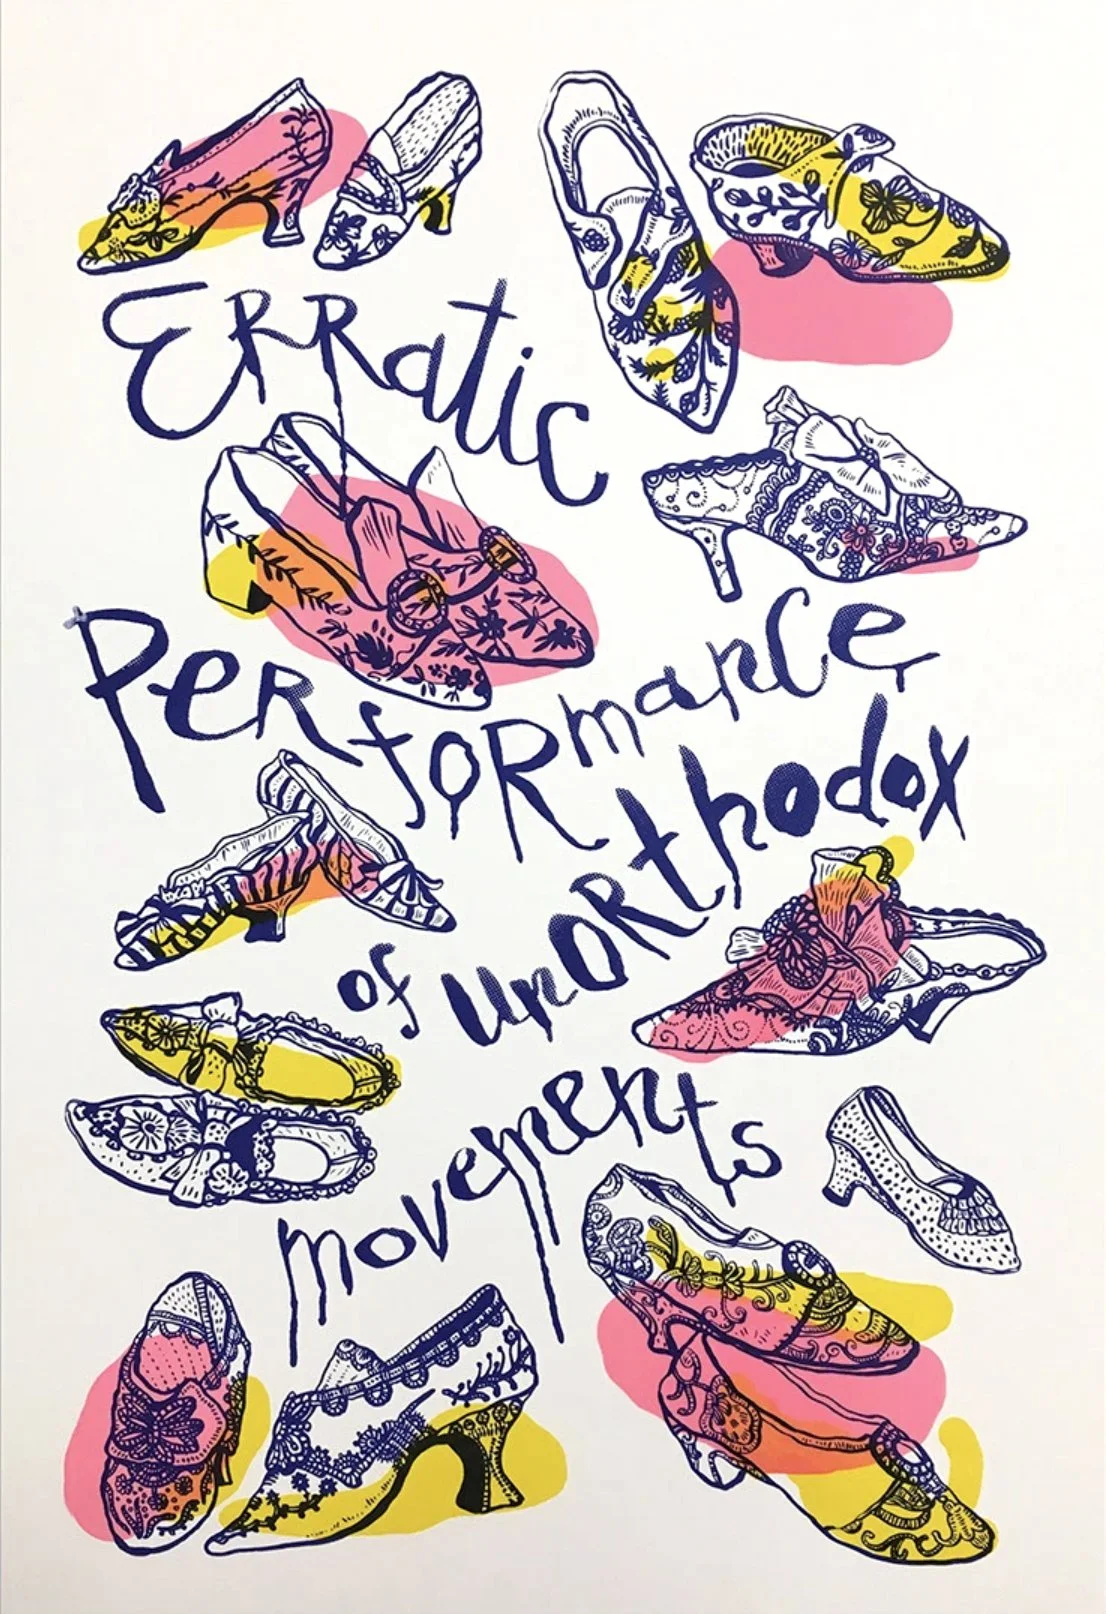 ERRatic
PeRfORmance
of unORthodox
movements